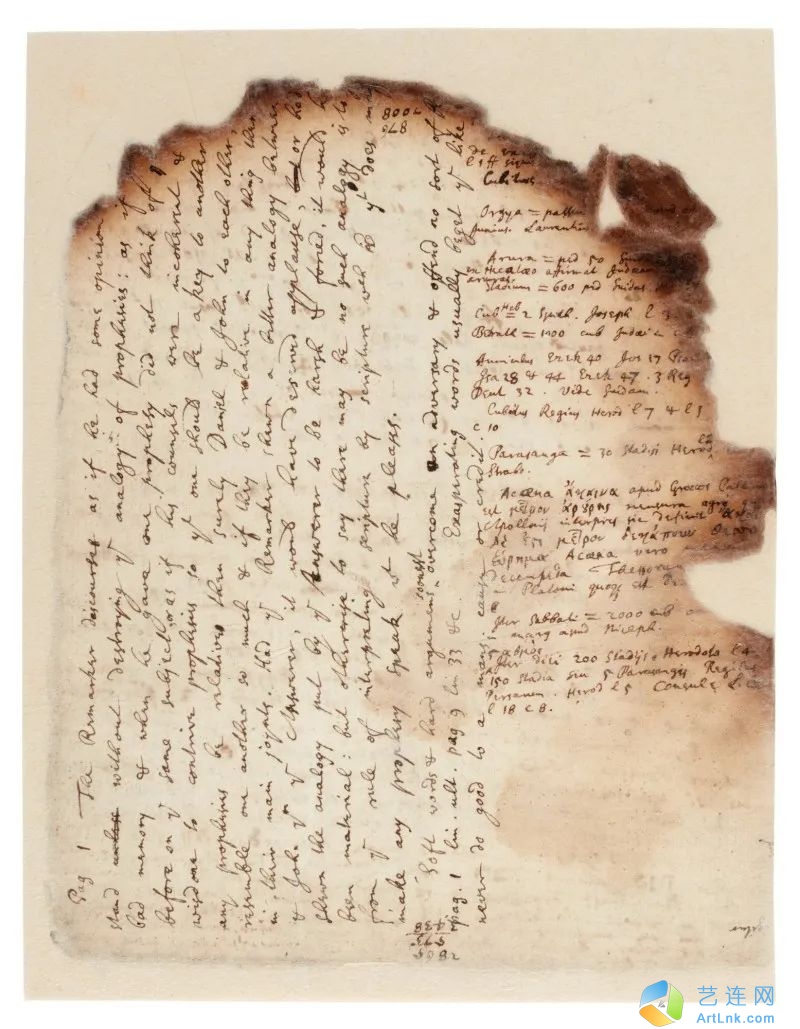 Pag 1 The Remarker discourses as if he had some opinion
stand unless without destroying yͤ analogy of prophesies: as if
bad memory & when he gave one prophesy did not think of
before on yͤ same subject, or as if his counsels were incoherent &
wisdome to contrive prophesies so yͭ one should be a key to another
any prophesies be relatives then surely Daniel & John to each other
resemble one another so much & if they be relative in any thing then
in their main joynts. Had yͤ Remarker shewn a better analogy between
& John yn yͤ Answerer, it would have deserved applause, but or had
shewn the analogy put by yͤ Answerer to be harsh & forced, it would
been material: but otherwise to say there may be no such analogy is to
from yͤ rule of interpreting scripture by scripture wch yͭ does may
make any prophesy speak wͭ he pleases.
Soft words & hard arguments soonest overcome an adversary & offend no sort of
pag. 1 lin. ult. pag 9 lin 33 &c. Exasperating words usually beget yͤ like
never do good to a mans cause or credit.
Cubitus
Orgya = passus
Junius. Laurentius
Arura = pid 50
en Hecatæo affirmat Judæam
aruras
Stadium = 600 pid Suidas
Cub Heb = 2 Spith. Joseph l 3
= 1100 cub Judaica
Funiculus Ezek 40 Jos 17
Isa 28 & 44 Ezek 47. 3 Reg
Deut 32. Vide Suidam.
Cubitus Regius Herod l 7 & l 5
c 10
Parasanga = 30 Stadijs Herod l 2
Strabo.
Acæna apud Græcos
est μέτρον ἀρούρης mensura agro
Apollonij interpres sic definit
μέτρον δεκάπουν
Acæna vero
decempeda
Platoni quoqꝫ est
Iter Sabbati = 2000 cub
apud Niceph.
Iter diei 200 Stadijs. Herodoto l 4
150 Stadia seu 5 Parasangis Regius
Persarum. Herod l 5 Consule
l 18 c 8.
艺连网
ArtLnk.com